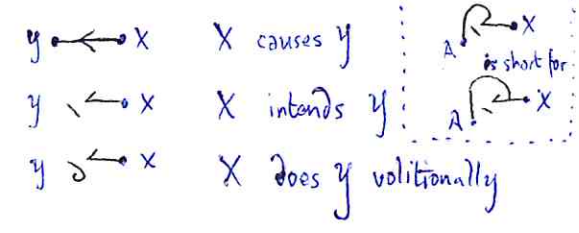 y X X causes y
y X X intends y
y X X does y volitionally
A X
is short for
A X